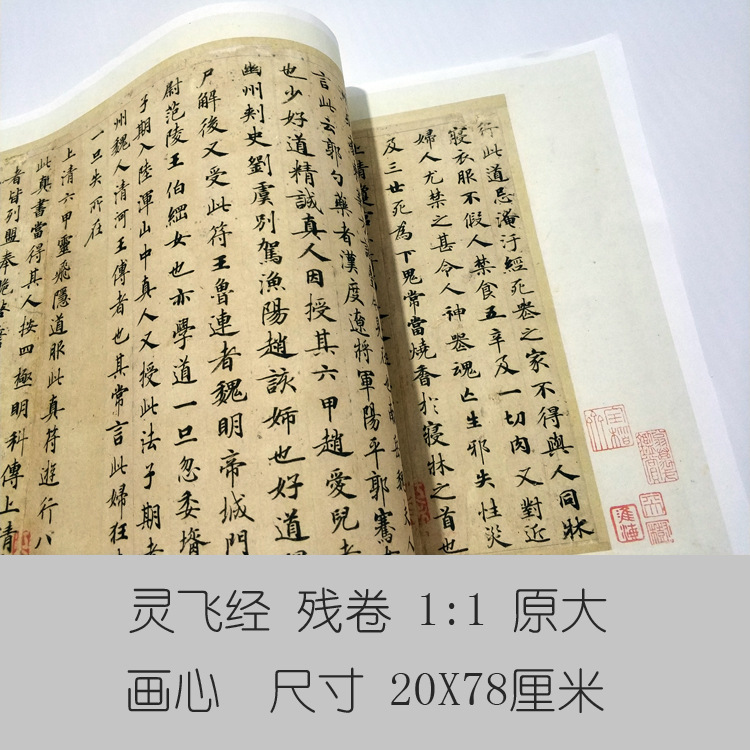 行此道忌淹汙經死喪之家不得與人同牀
寢衣服不假人禁食五辛及一切肉又對近
婦人尤禁之甚令人神喪魂亡生邪失性災
及三世死為下鬼常當燒香於寢牀之首也
言此云郭勺藥者漢度遼將軍陽平郭騫
也少好道精誠真人因授其六甲趙愛兒者
幽州刾史劉虞別駕漁陽趙該姉也好道
尸解後又受此符王魯連者魏明帝城門
尉范陵王伯綱女也亦學道一旦忽委壻
子期入陸渾山中真人又授此法子期者
州魏人清河王傳者也其常言此婦狂
一旦失所在
上清六甲靈飛隱道服此真符遊行八
此真書當得其人按四極明科傳上清
者皆列盟奉
灵飞经 残卷 1:1 原大
画心 尺寸 20X78厘米